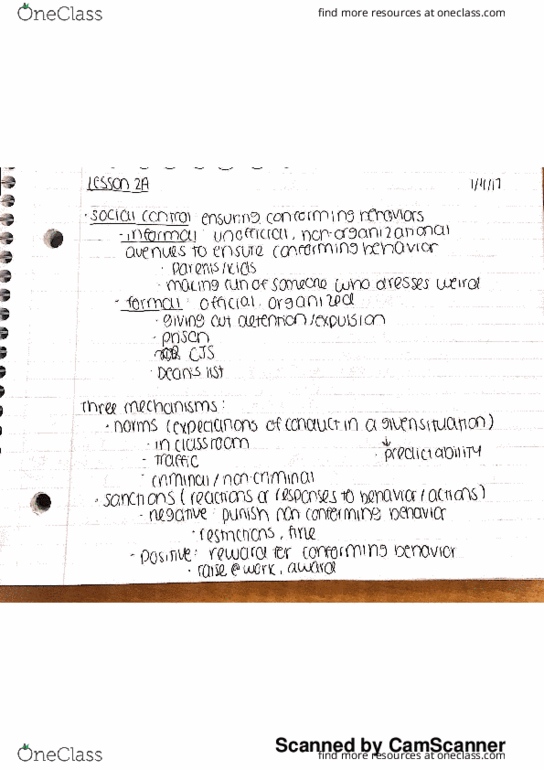 OneClass
find more resources at oneclass.com
Lesson 2A
1/4/17
· social control ensuring conforming behaviors
- informal: unofficial, non-organizational
avenues to ensure conforming behavior
· parents/kids
· making fun of someone who dresses weird
- formal: official, organized
· giving out detention/expulsion
· prison
CJS
· Dean's list
Three mechanisms:
· norms (expectations of conduct in a given situation)
· in classroom
↓
· predictability
- Traffic
· criminal/non-criminal
· sanctions (reactions or responses to behavior/actions)
- negative: punish non conforming behavior
· restrictions, fine
- positive: reward for conforming behavior
· raise @ work, award
Scanned by CamScanner
OneClass
find more resources at oneclass.com